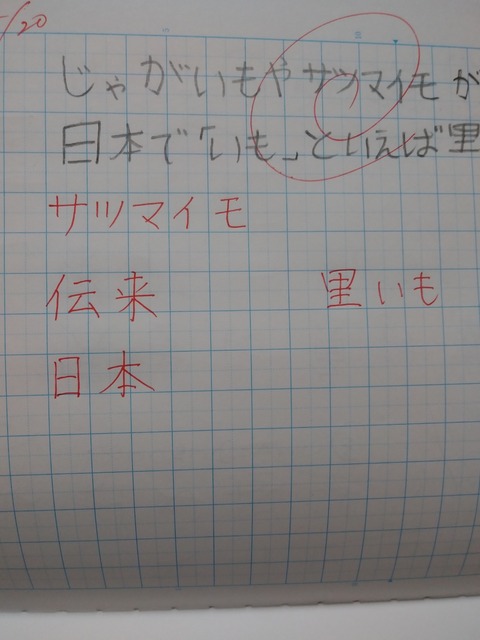 /20
じゃがいもやサツマイモが
日本で「いも」といえば里
サツマイモ
伝来 里いも
日本